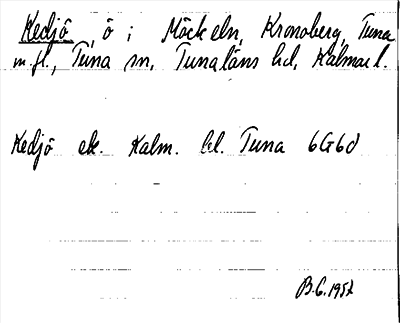 Kedjö, ö i Möckeln, Kronoberg, Tuna
m.fl., Tuna sn, Tunaläns hd, Kalmar l.
Kedjö ek. Kalm. bl. Tuna 6G6d
B.G. 1957